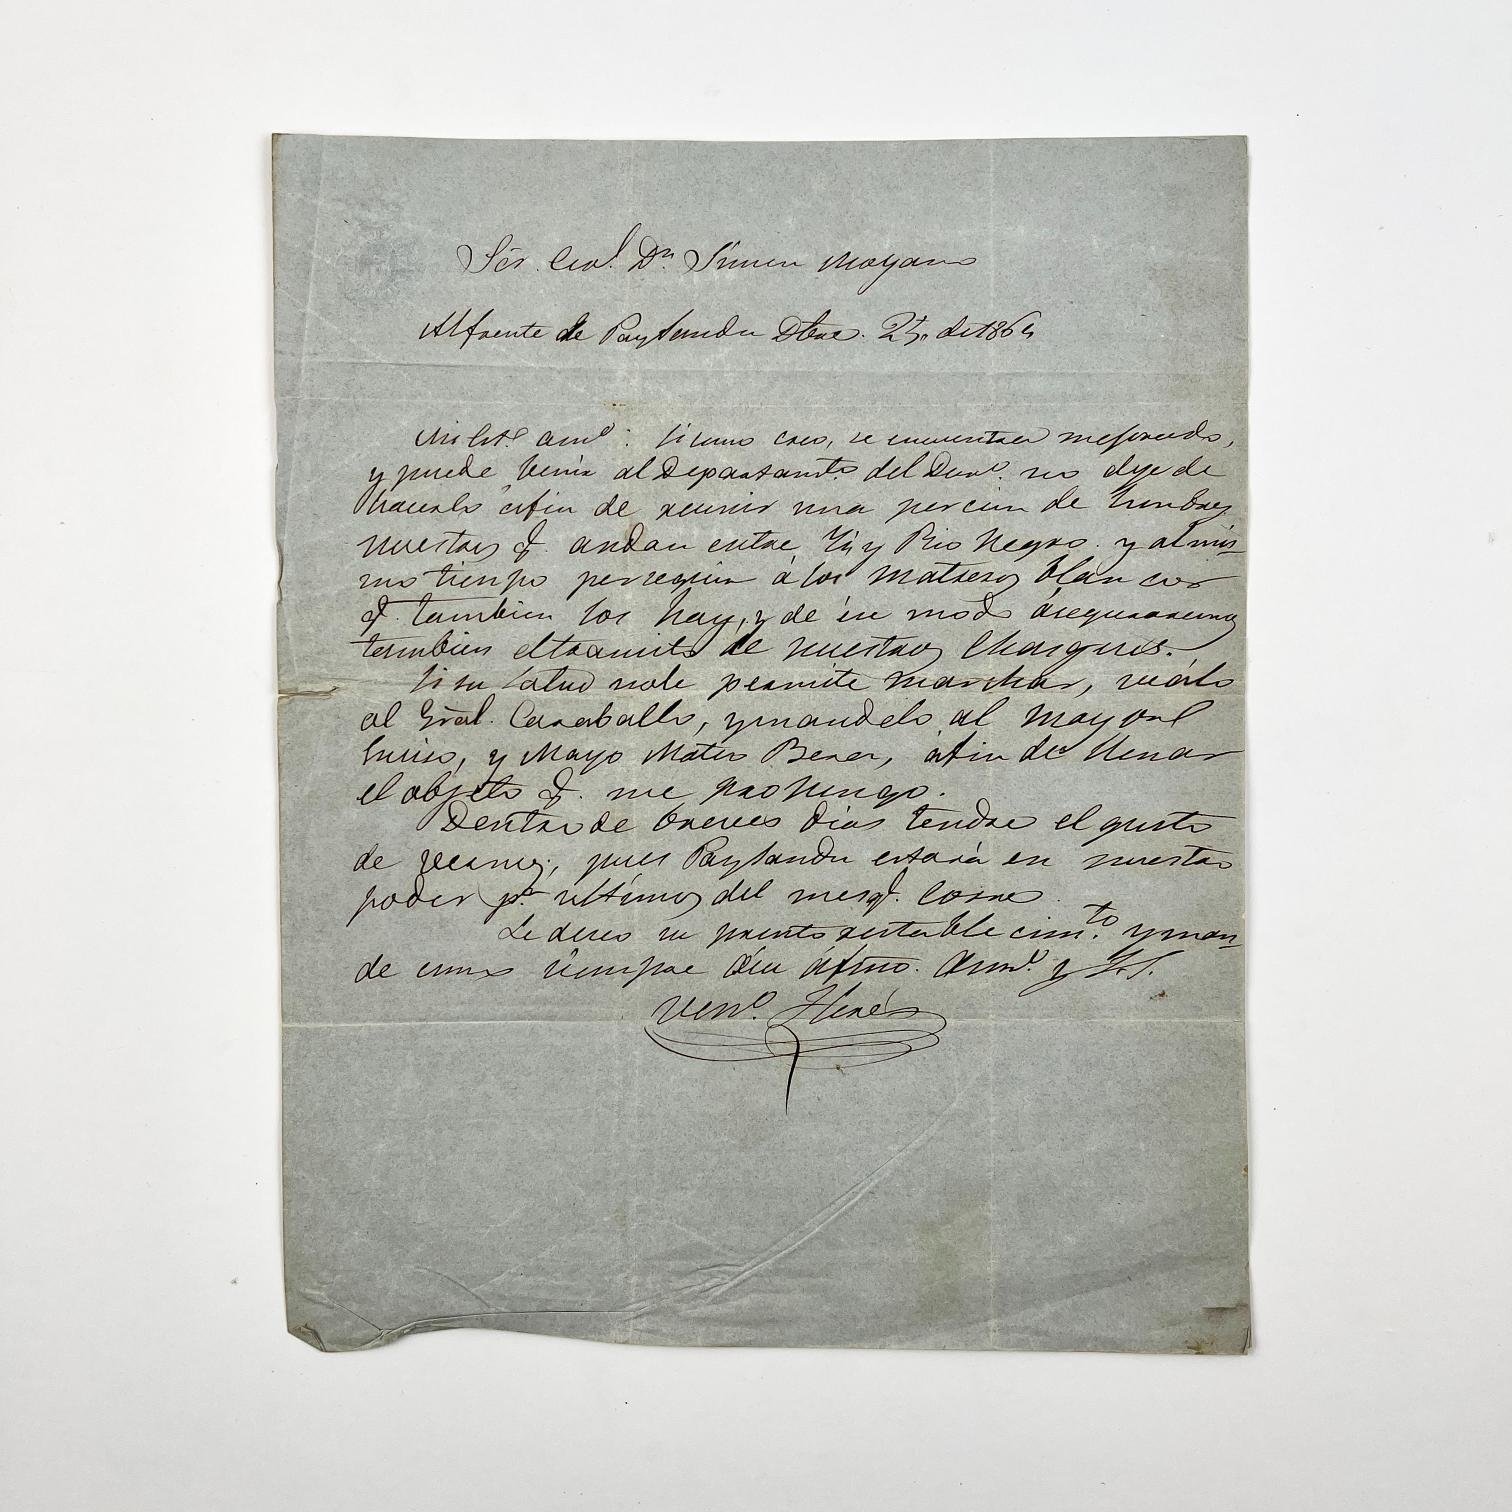 Sör. Cnel. Dn. Simon Moyano
Al frente de Paysandu Dbre. 25. de 1864
Mi esto. amo: Si como creo, se encuentra mejorado,
y puede venir al Departamto. del Durno. no deje de
hacerlo afin de reunir una porcion de hombres
nuestros q. andan entre Yi y Rio Negro. y al mis-
mo tiempo perseguir á los matreros blancos
q. tambien los hay, y de ése modo áseguraremos
tambien el transito de nuestros Chasques.
Si su salud no le permite marchar, veálo
al Gral. Caraballo, y mandelo al Mayor
y Mayo Mateo afin de llenar
el objeto q. me propongo.
Dentro de breves dias tendre el gusto
de vernos, pues Paysandu estará en nuestro
poder pa. ultimos del mes q. corre
Le deseo su pronto restablecimto. y man-
de como siempre a su áfmo. Amo. y S.S.
Veno. Flores